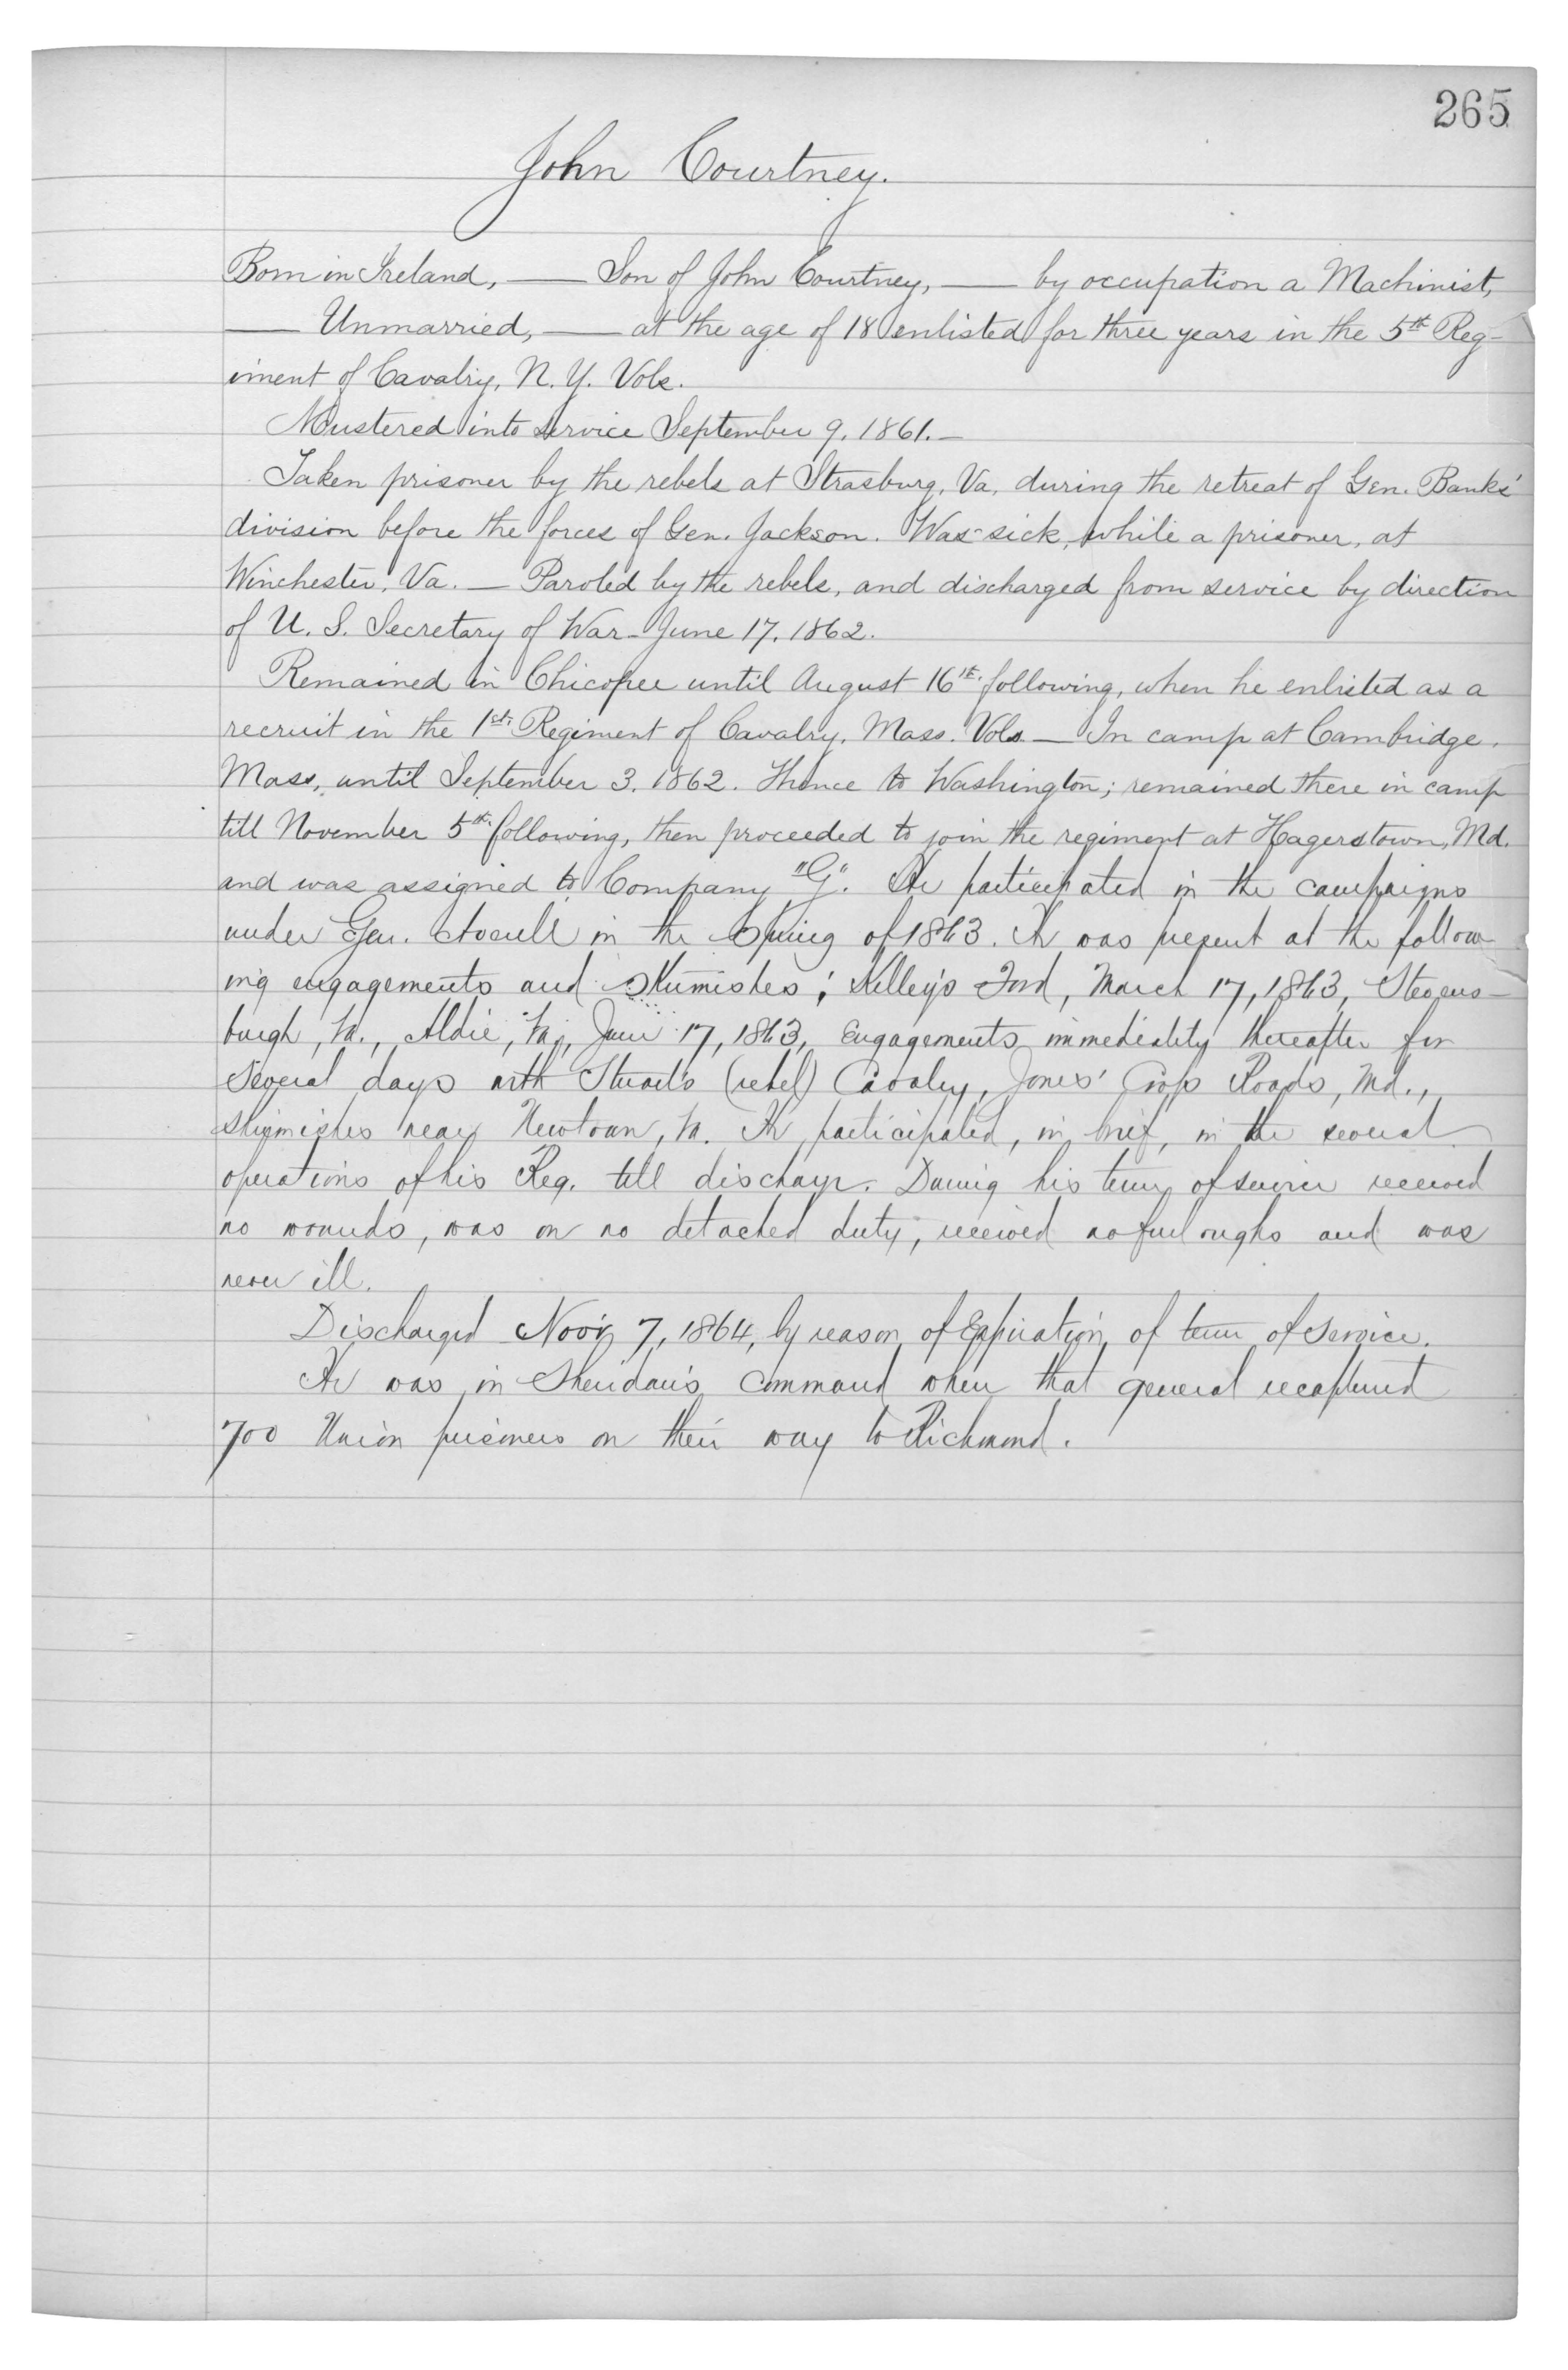 265
John Courtney.
Born in Ireland, — Son of John Courtney, — by occupation a Machinist,
— Unmarried, — at the age of 18 enlisted for three years in the 5th Reg-
iment of Cavalry, N. Y. Vols.
Mustered into service September 9, 1861. —
Taken prisoner by the rebels at Strasburg, Va, during the retreat of Gen. Banks'
division before the forces of Gen. Jackson. Was sick, while a prisoner, at
Winchester, Va. — Paroled by the rebels, and discharged from service by direction
of U. S. Secretary of War - June 17, 1862.
Remained in Chicopee until August 16th following, when he enlisted as a
recruit in the 1st Regiment of Cavalry, Mass. Vols. — In camp at Cambridge,
Mass, until September 3, 1862. Thence to Washington; remained there in camp
till November 5th following, then proceeded to join the regiment at Hagerstown, Md.
and was assigned to Company "G". He participated in the campaigns
under Gen. Averell in the Spring of 1863. He was present at the follow-
ing engagements and Skirmishes; Kelley's Ford, March 17, 1863, Stevens-
burgh, Va., Aldie, Va, June 17, 1863, Engagements immediately thereafter for
several days with Stuart's (rebel) Cavalry, Jones' Cross Roads, Md.,
skirmishes near Newtown, Va. He participated, in brief, in the several
operations of his Reg. till discharge. During his term of service received
no wounds, was on no detached duty, received no furloughs and was
never ill.
Discharged Nov. 7, 1864, by reason of Expiration of term of service.
He was in Sheridan's command when that general recaptured
700 Union prisoners on their way to Richmond.